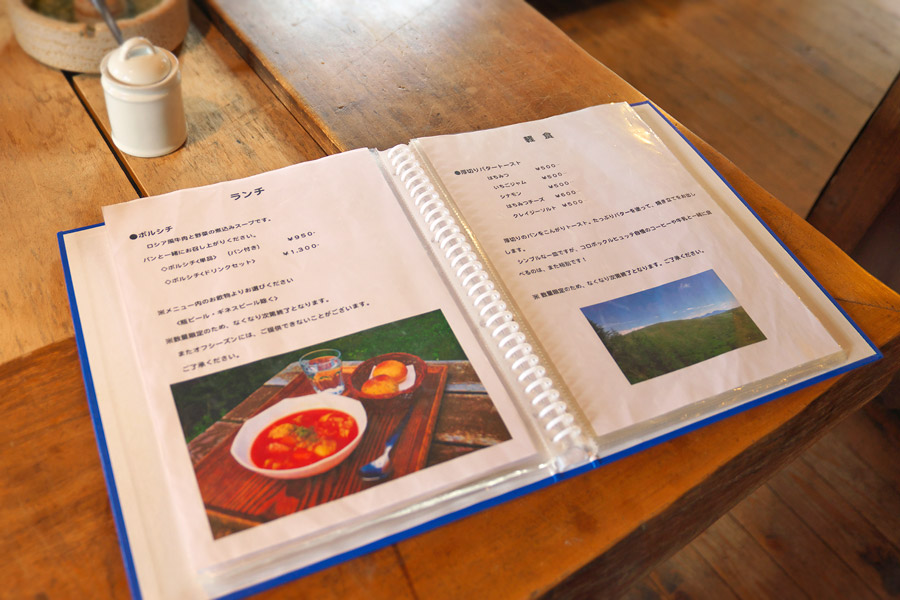 ランチ
●ボルシチ
ロシア風牛肉と野菜の煮込みスープです。
パンと一緒にお召し上がりください。
◇ボルシチ<単品> (パン付き) ￥950-
◇ボルシチ<ドリンクセット> ￥1,300-
※メニュー内のお飲物よりお選びください
<瓶ビール・ギネスビール除く>
※数量限定のため、なくなり次第終了となります。
またオフシーズンには、ご提供できないことがございます。
ご了承ください。
軽 食
●厚切りバタートースト ￥500-
はちみつ ￥500-
いちごジャム ￥500-
シナモン ￥500-
はちみつチーズ ￥600-
クレイジーソルト ￥500
厚切りのパンをこんがりトースト。たっぷりバターを塗って、焼き立てをお出し
します。
シンプルな一皿ですが、コロボックルヒュッテ自慢のコーヒーや牛乳と一緒に食
べるのは、また格別です！
※数量限定のため、なくなり次第終了となります。ご了承ください。